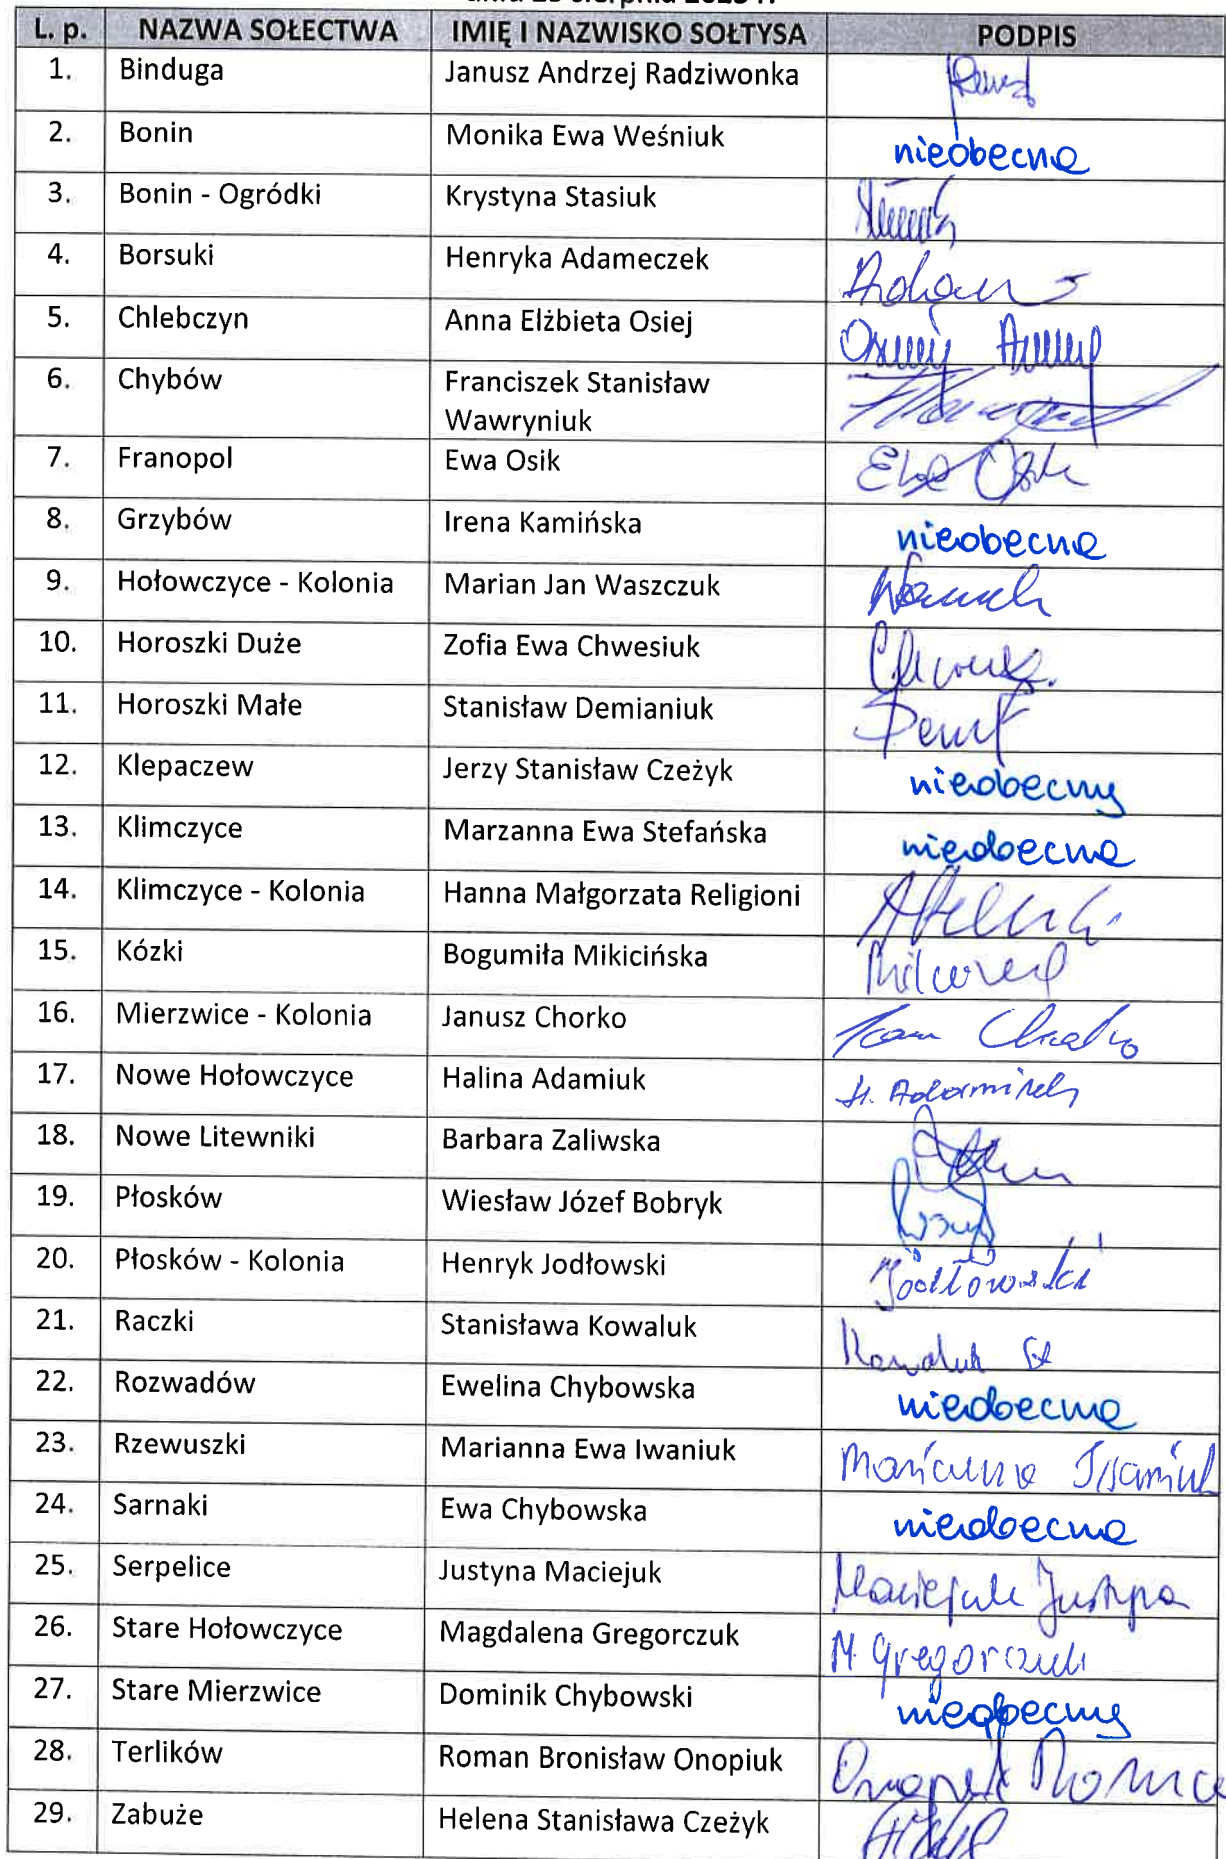 L. p. NAZWA SOŁECTWA IMIĘ I NAZWISKO SOŁTYSA PODPIS
1. Binduga Janusz Andrzej Radziwonka
2. Bonin Monika Ewa Weśniuk nieobecna
3. Bonin - Ogródki Krystyna Stasiuk
4. Borsuki Henryka Adameczek
5. Chlebczyn Anna Elżbieta Osiej
6. Chybów Franciszek Stanisław
Wawryniuk
7. Franopol Ewa Osik Ewa Osik
8. Grzybów Irena Kamińska nieobecna
9. Hołowczyce - Kolonia Marian Jan Waszczuk
10. Horoszki Duże Zofia Ewa Chwesiuk
11. Horoszki Małe Stanisław Demianiuk
12. Klepaczew Jerzy Stanisław Czeżyk nieobecny
13. Klimczyce Marzanna Ewa Stefańska nieobecna
14. Klimczyce - Kolonia Hanna Małgorzata Religioni
15. Kózki Bogumiła Mikicińska
16. Mierzwice - Kolonia Janusz Chorko
17. Nowe Hołowczyce Halina Adamiuk H. Adamiuk
18. Nowe Litewniki Barbara Zaliwska
19. Płosków Wiesław Józef Bobryk
20. Płosków - Kolonia Henryk Jodłowski Jodłowski
21. Raczki Stanisława Kowaluk Kowaluk St
22. Rozwadów Ewelina Chybowska nieobecna
23. Rzewuszki Marianna Ewa Iwaniuk Marianna Iwaniuk
24. Sarnaki Ewa Chybowska nieobecna
25. Serpelice Justyna Maciejuk Maciejuk Justyna
26. Stare Hołowczyce Magdalena Gregorczuk M. Gregorczuk
27. Stare Mierzwice Dominik Chybowski nieobecny
28. Terlików Roman Bronisław Onopiuk
29. Zabuże Helena Stanisława Czeżyk